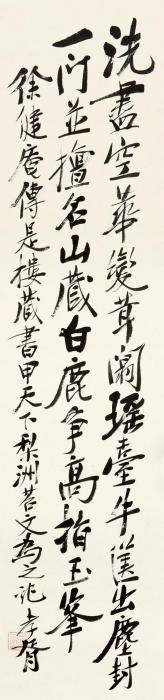 洗盡空華變葺闒瑤臺牛漢出塵封
一門並擅名山藏白鹿爭高指玉峯
徐健庵傳是樓藏書甲天下梨洲苔文為之記孝胥